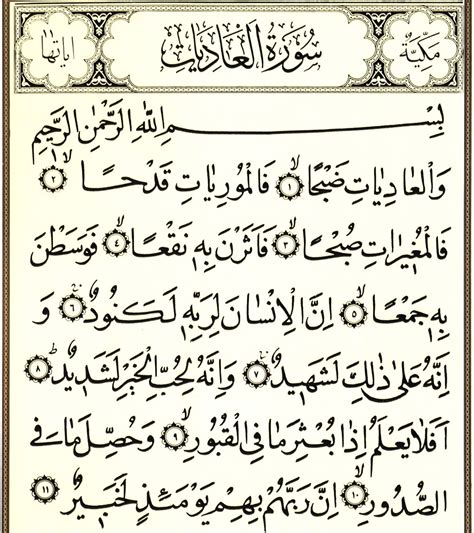 مكية سورة العاديات اياتها
بِسْمِ اللّٰهِ الرَّحْمٰنِ الرَّحِيمِ
وَالْعَادِيَاتِ ضَبْحًاۙ ﴿١﴾ فَالْمُورِيَاتِ قَدْحًاۙ ﴿٢﴾
فَالْمُغِيرَاتِ صُبْحًاۙ ﴿٣﴾ فَاَثَرْنَ بِهٖ نَقْعًاۙ ﴿٤﴾ فَوَسَطْنَ
بِهٖ جَمْعًاۙ ﴿٥﴾ اِنَّ الْاِنْسَانَ لِرَبِّهٖ لَكَنُودٌۚ ﴿٦﴾ وَ
اِنَّهُ عَلٰى ذٰلِكَ لَشَهِيدٌۚ ﴿٧﴾ وَاِنَّهُ لِحُبِّ الْخَيْرِ لَشَدِيدٌۜ ﴿٨﴾
اَفَلَا يَعْلَمُ اِذَا بُعْثِرَ مَا فِي الْقُبُورِۙ ﴿٩﴾ وَحُصِّلَ مَا فِي
الصُّدُورِۙ ﴿١٠﴾ اِنَّ رَبَّهُمْ بِهِمْ يَوْمَئِذٍ لَخَبِيرٌ ﴿١١﴾